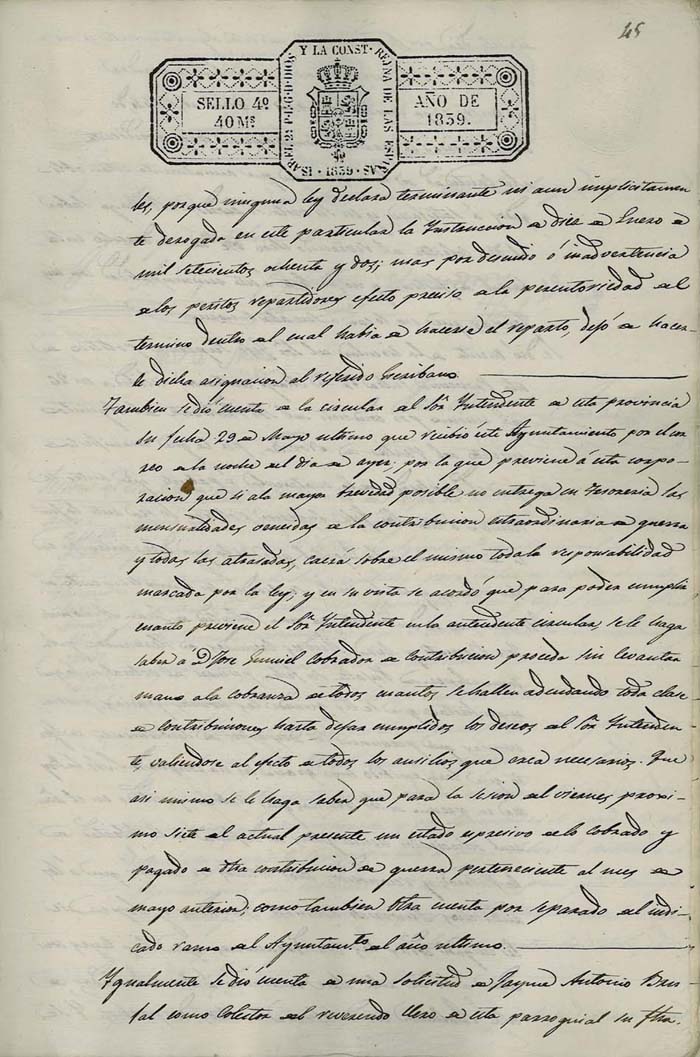 45
ISABEL 2ª P.L.G.D. DIOS Y LA CONST. REYNA DE LAS ESPAÑAS
SELLO 4º
40 Ms
AÑO DE
1839.
1839
les, porque ninguna ley declara terminante ni aun implicitamen
te derogada en este particular la Instruccion de diez de Enero de
mil setecientos ochenta y dos; mas por descuido ó inadvertencia
de los peritos repartidores efecto preciso de la perentoriedad del
termino dentro del cual habia de hacerse el reparto, dejó de hacer
le dicha asignacion al referido Escribano.
Tambien se dió cuenta de la circular del Sor. Intendente de esta provincia
su fecha 29 de Mayo ultimo que recibió este Ayuntamiento por el cor
reo de la noche del dia de ayer, por la que previene á esta corpo
racion que si a la mayor brevedad posible no entrega en Tesoreria las
mensualidades vencidas de la contribucion estraordinaria de guerra
y todas las atrasadas, caerá sobre el mismo toda la responsabilidad
marcada por la ley; y en su vista se acordó que para poder cumplir
cuanto previene el Sor. Intendente en la antecedente circular, se le haga
saber á D. Jose Cobrador de contribucion proceda sin levantar
mano a la cobranza de todos cuantos se hallen adeudando toda clase
de contribuciones hasta dejar cumplidos los deseos del Sor. Intenden
te, valiendose al efecto de todos los ausilios que crea necesarios. Que
asi mismo se le haga saber que para la sesion del viernes proxi
mo siete del actual presente un estado espresivo de lo cobrado y
pagado de dha contribucion de guerra perteneciente al mes de
mayo anterior; como tambien otra cuenta por separado del indi
cado ramo del Ayuntamto. del año ultimo.
Igualmente se dió cuenta de una solicitud de Jayme Antonio
tal como Colector del reverendo Clero de esta parroquial su fha.